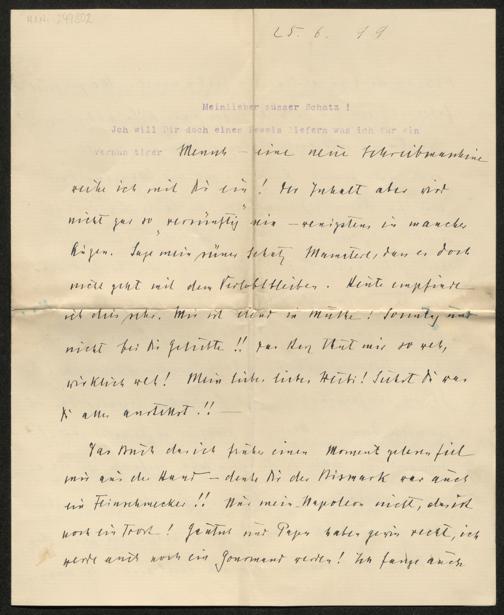 H.I.N. 249802
25. 6. 19
Meinlieber süsser Schatz !
Jch will Dir doch einen Beweis liefern was ich für ein
vernün tiger Mensch – eine neue Schreibmaschine
weihe ich mit Dir ein! Der Inhalt aber wird
nicht gar so „vernünftig" sein – wenigstens in mancher
Augen. Sage mein süsser Schatz, dass es doch
nicht geht mit dem Verlobtbleiben. Heute empfinde
ich dies sehr. Mir ist elend im Mute! Sonntag und
nicht bei Dir Geliebte!! das Herz thut mir so weh,
wirklich weh! Mein liebes liebes Heidi! Siehst Du was
Du alles anstellst!! —
Das Buch das ich früher einen Moment gelesen fiel
mir aus der Hand – denke Dir der Bismark war auch
ein Feinschmecker!! Nur mein Napoleon nicht, das ist
noch ein Trost! und Papa haben gewiss recht, ich
werde auch noch ein Gourmand werden! Ich fange auch